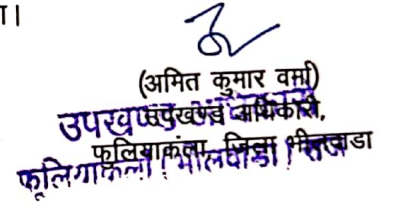 ा।
(अमित कुमार वर्मा)
उपखण्ड अधिकारी,
फूलियाकलां जिला भीलवाडा
फूलियाकलां (भीलवाडा) राज